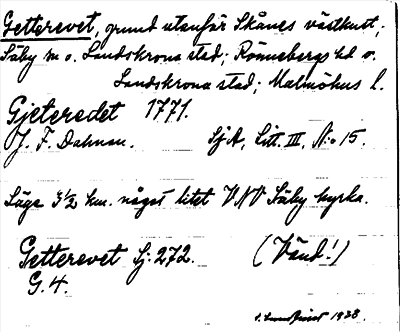 Getterevet, grund utanför Skånes västkust;
Säby sn o. Landskrona stad; Rönnebergs hd o.
Landskrona stad; Malmöhus l.
Gjeteredet 1771.
J. F. Dahman. SjA, Litt. III, No 15.
Läge 3½ km. något litet VNV Säby kyrka.
Getterevet Sj. 272. (Vänd!)
G. 4.
1928.